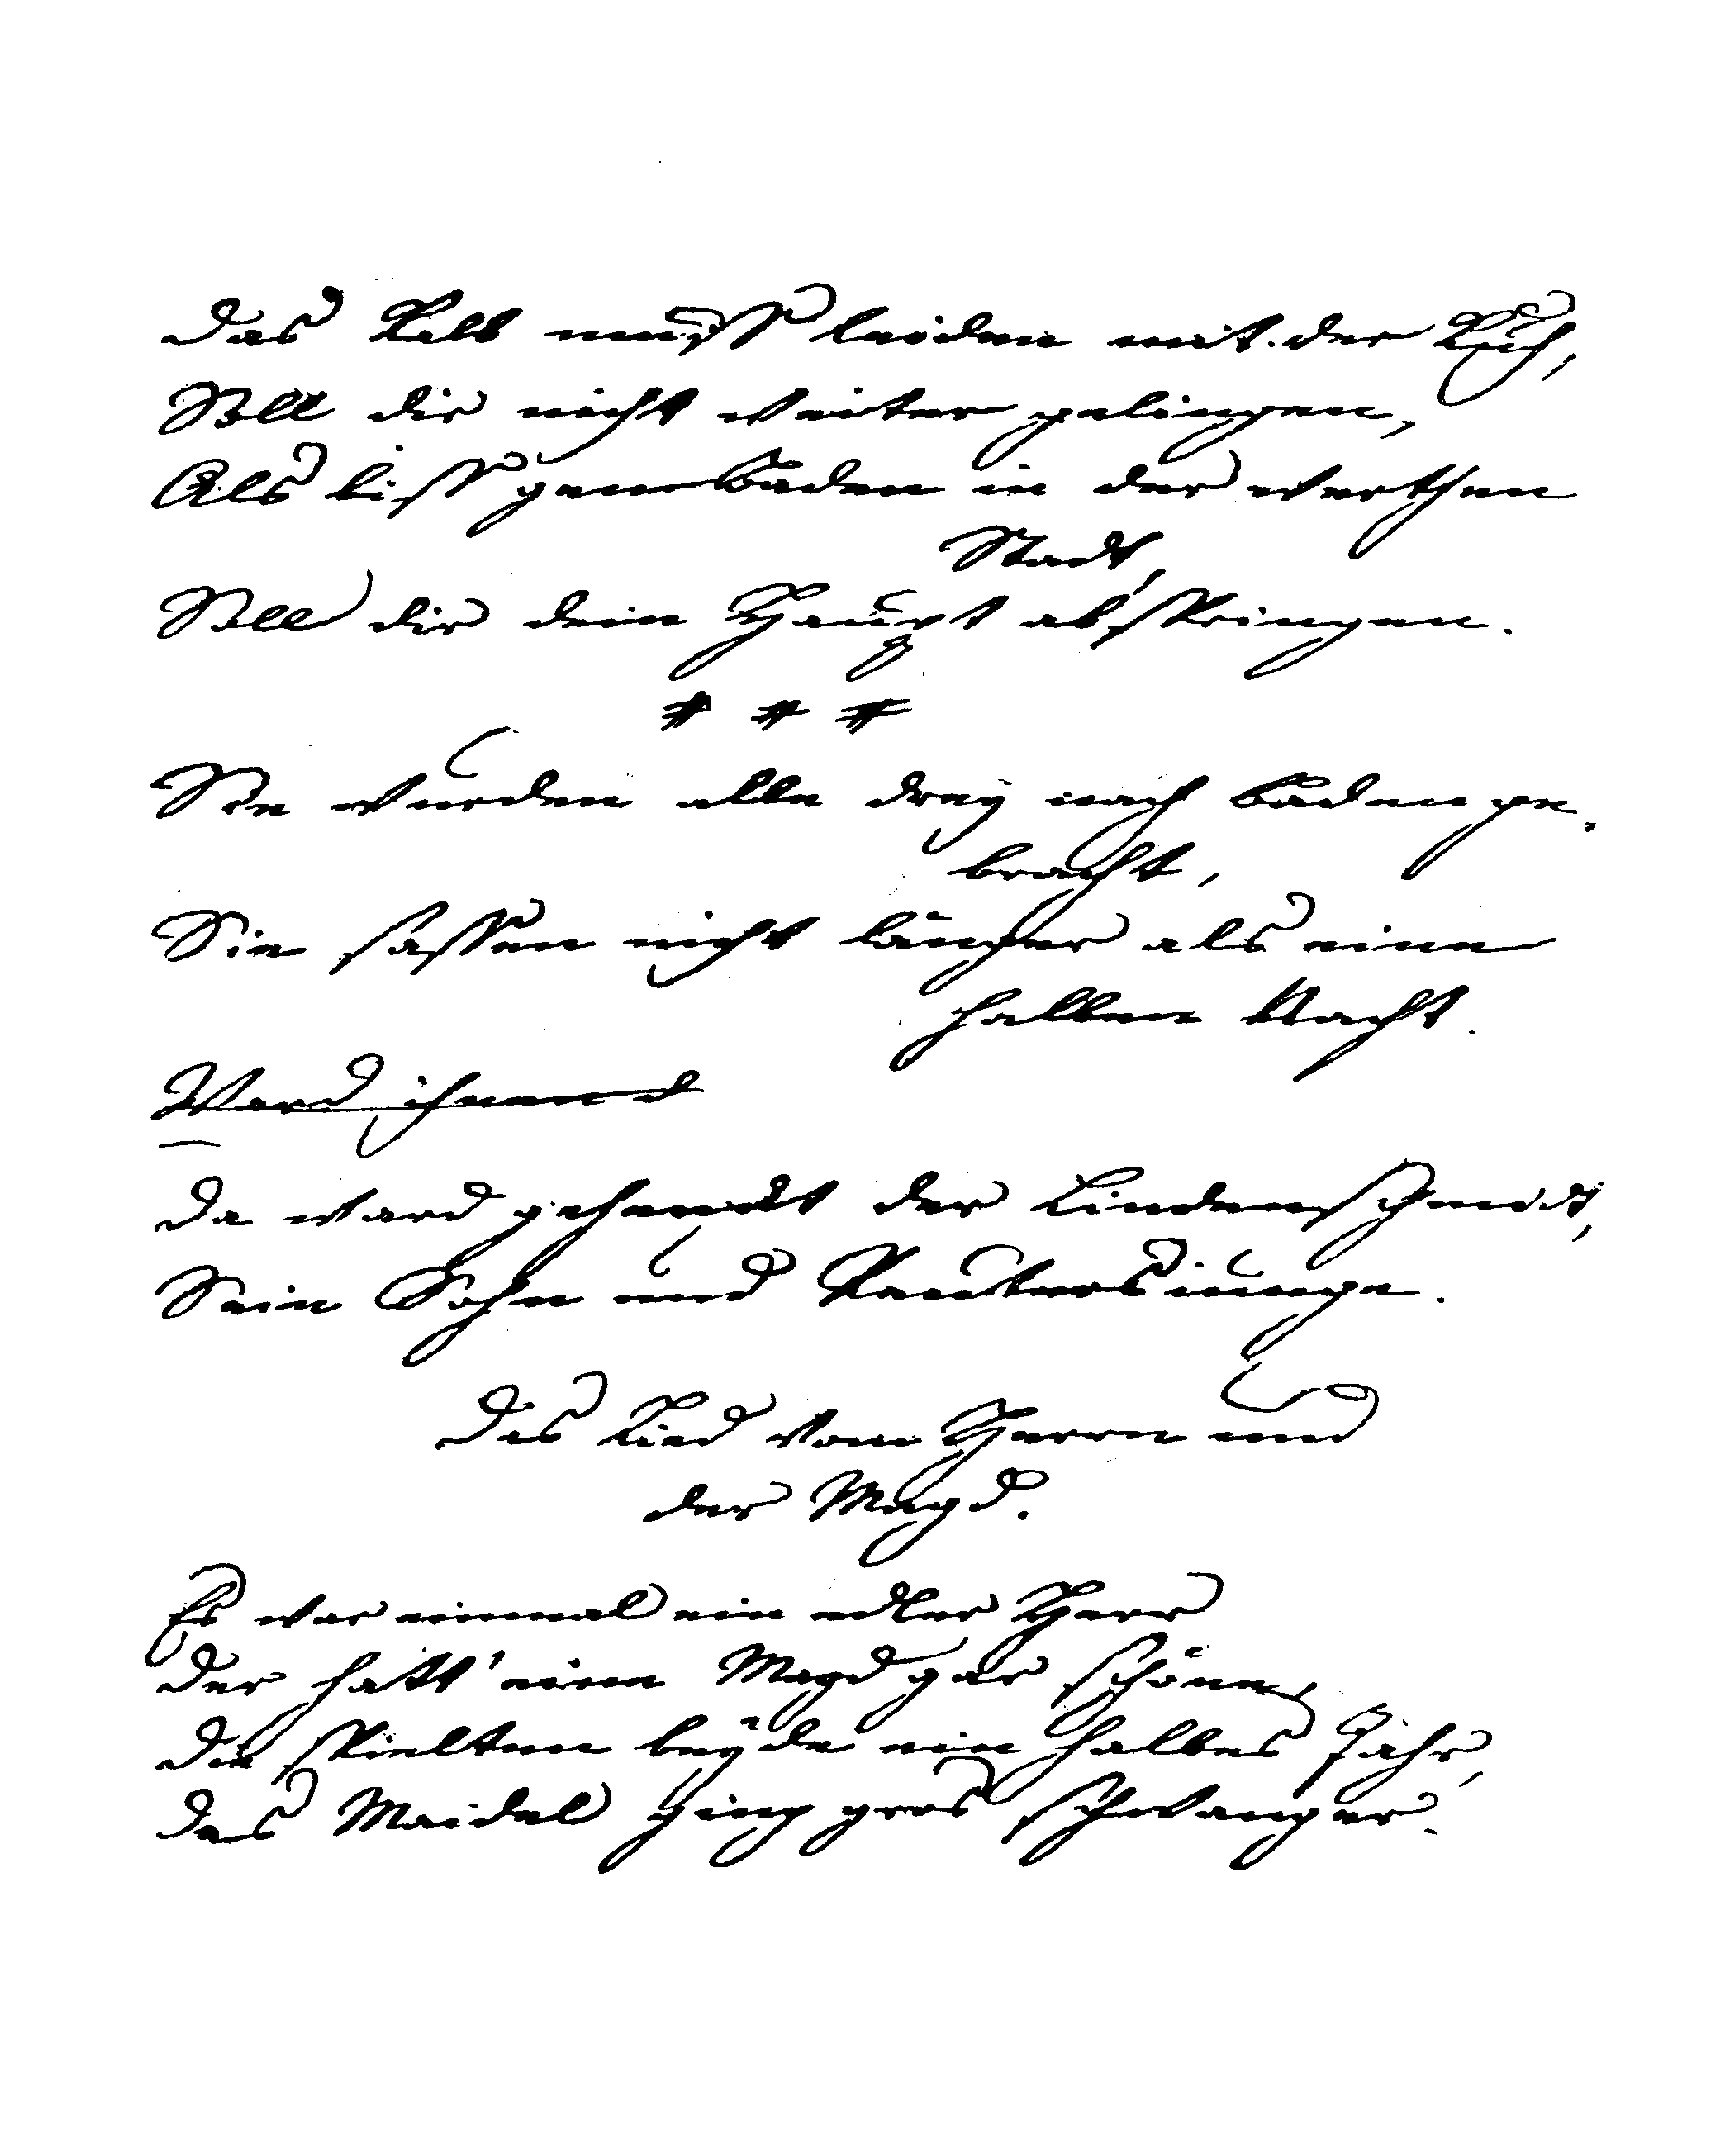 Das Kalb muss leiden mit der Kuh,
Soll dir nicht weiter gelingen,
Als biss gen Baden in der werthen
Stadt,
Soll dir dein Haupt abspringen.
* * *
Sie wurden alle drey nach Baden ge-
bracht,
Sie sassen nicht länger als eine
halben Nacht.
Ward ihnen d
Da ward gehenckt der Lindenschmidt,
Sein Sohn und Reutersiunge.
Das Lied vom Herrn und
der Magd.
Es war einmal ein edler Herr
Der hatt' eine Magd gar schöne,
Die spielten beyde ein halbes Jahr,
Das Maidel ging gros schwanger.